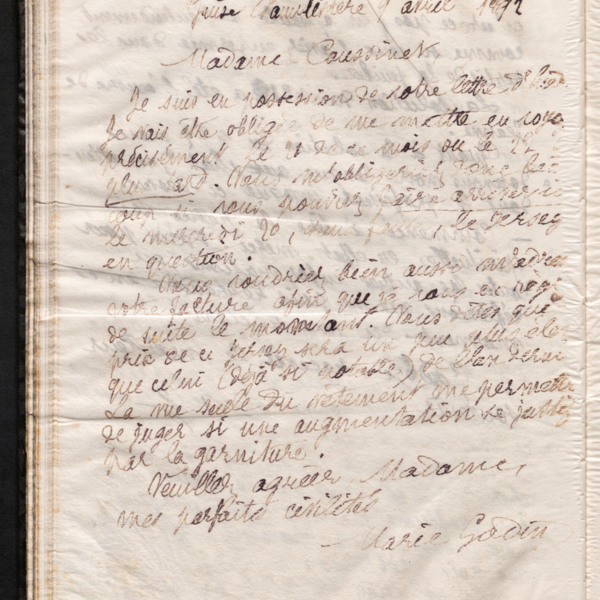 Guise Familistère 9 avril 1892
Madame Caussinek
Je suis en possession de votre lettre d'hier.
Je vais être obligée de me mettre en route
précisément le 21 de ce mois ou le 22 a
plus tard. Vous m'obligeriez donc bien
coup si vous pouviez faire arriver ici
le mercredi 20, sans faute, le Jersey
en question.
Vous voudriez bien aussi m'adres
votre facture afin que je vous en règle
de suite le montant. Vous dites que
prix de ce Jersey sera un peu plus éle
que celui (déjà si notable) de l'an derni
La vue seule du vêtement me permettra
de juger si une augmentation se justifi
par la garniture.
Veuillez agréer, Madame,
mes parfaites civilités
Marie Godin